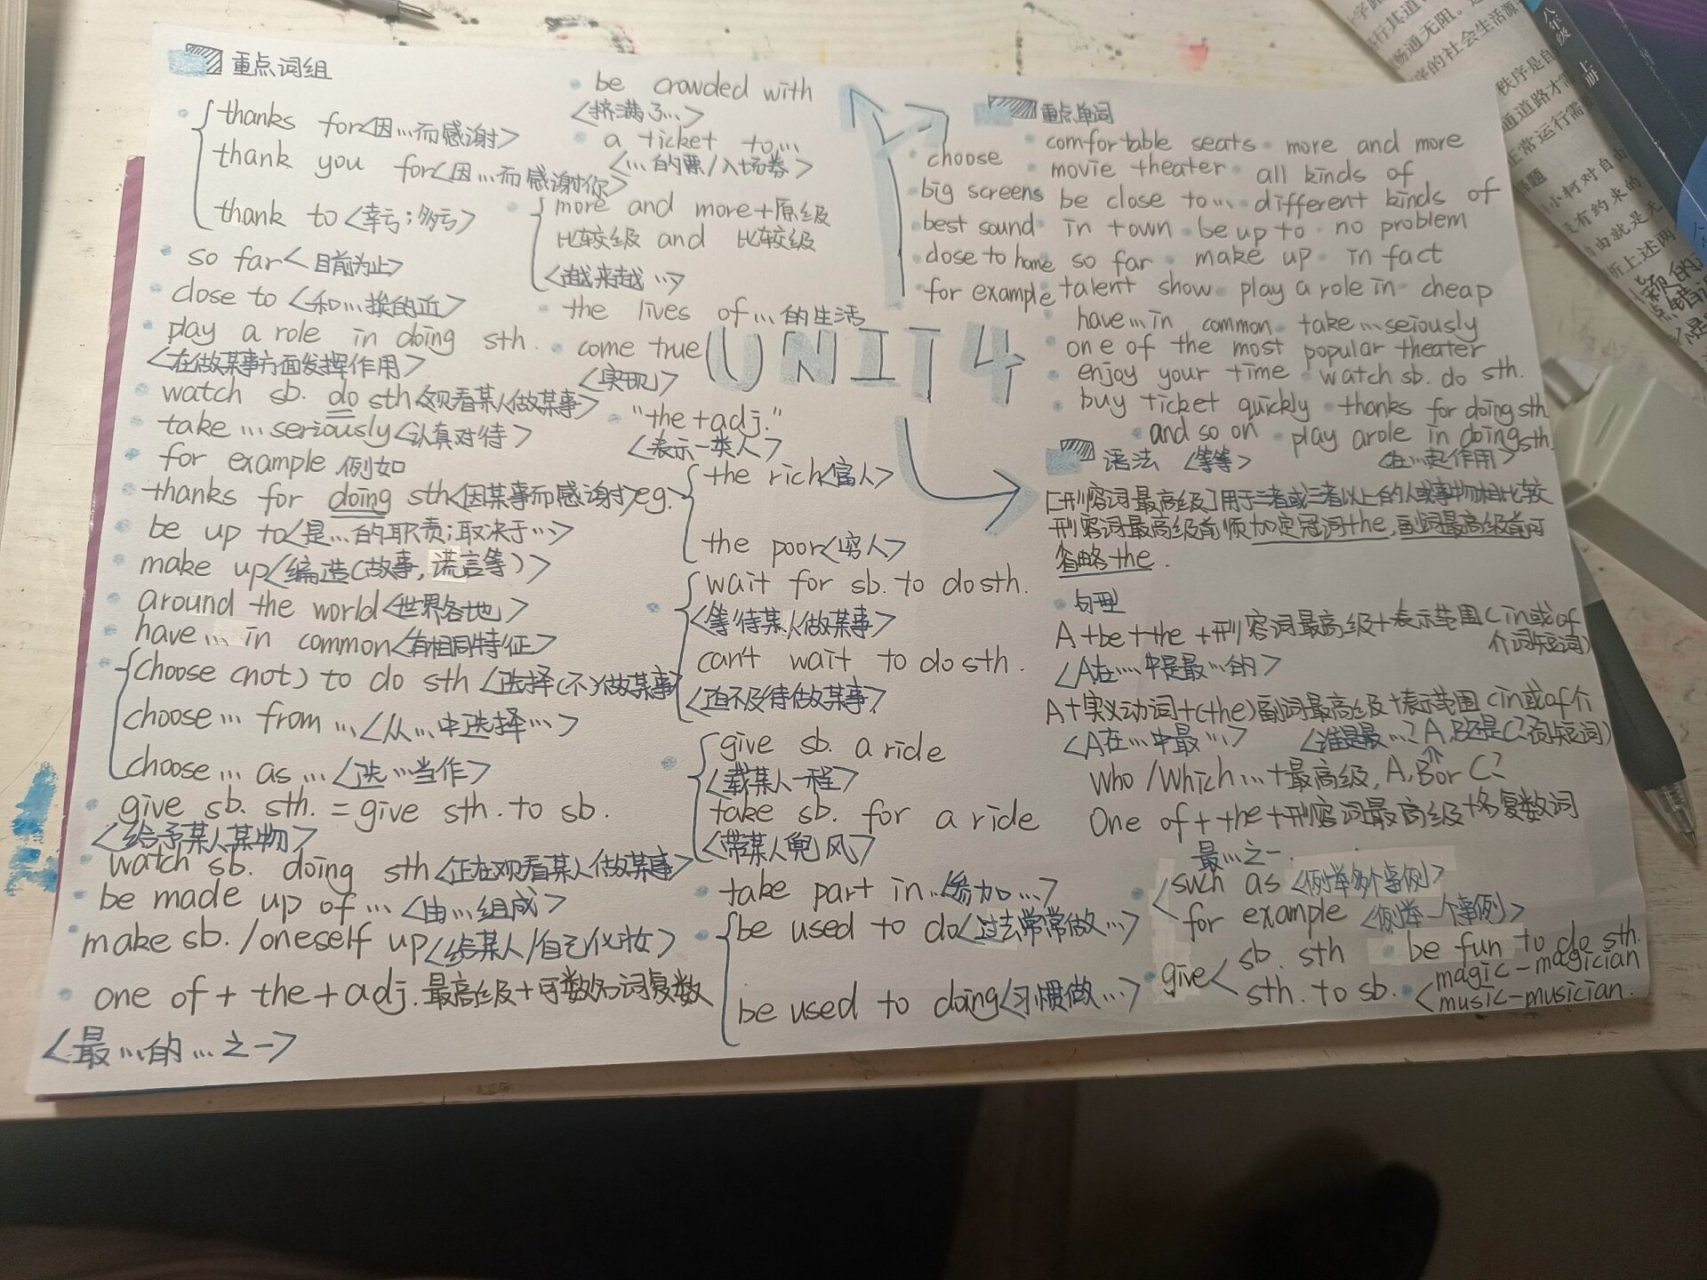 重点词组
thanks for<因...而感谢>
thank you for<因...而感谢你>
thank to<幸亏;多亏>
so far<目前为止>
close to<和...挨的近>
play a role in doing sth.
<在做某事方面发挥作用>
watch sb. do sth<观看某人做某事>
take...seriously<认真对待>
for example 例如
thanks for doing sth<因某事而感谢>
be up to<是...的职责;取决于...>
make up<编造(故事,谎言等)>
around the world<世界各地>
have... in common<有相同特征>
choose (not) to do sth<选择(不)做某事>
choose... from...<从...中选择...>
choose... as...<选...当作>
give sb. sth. = give sth. to sb.
<给予某人某物>
watch sb. doing sth<正在观看某人做某事>
be made up of...<由...组成>
make sb./oneself up<给某人/自己化妆>
one of + the + adj.最高级+可数名词复数
<最...的...之一>
be crowded with
<挤满了...>
a ticket to...
<...的票/入场券>
more and more+原级
比较级 and 比较级
<越来越...>
the lives of...的生活
come true
<实现>
"the+adj."
<表示一类人>
eg.
the rich<富人>
the poor<穷人>
wait for sb. to do sth.
<等待某人做某事>
can't wait to do sth.
<迫不及待做某事>
give sb. a ride
<载某人一程>
take sb. for a ride
<带某人兜风>
take part in...<参加...>
be used to do<过去常常做...>
be used to doing<习惯做...>
UNIT4
重点单词
comfortable seats more and more
choose movie theater all kinds of
big screens be close to... different kinds of
best sound in town be up to no problem
close to home so far make up in fact
for example talent show play a role in cheap
have...in common take...seriously
one of the most popular theater
enjoy your time watch sb. do sth.
buy ticket quickly thanks for doing sth
and so on play arole in doing sth.
<等等> <在...起作用>
语法
[形容词最高级]用于三者或三者以上的人或事物相比较
形容词最高级前须加定冠词the,副词最高级前可
省略the.
句型
A+be+the+形容词最高级+表示范围(in或of
介词短词)
<A在...中是最...的>
A+实义动词+(the)副词最高级+表示范围(in或of介
词短词)
<A在...中最...> <谁是最...?A,B还是C?>
Who/Which...+最高级,A,B or C?
One of + the+形容词最高级+名复数词
最...之一.
such as<例举多个事例>
for example<例举一个事例>
give
sb. sth
sth. to sb.
be fun to do sth.
magic-magician
music-musician.
八年级 上册